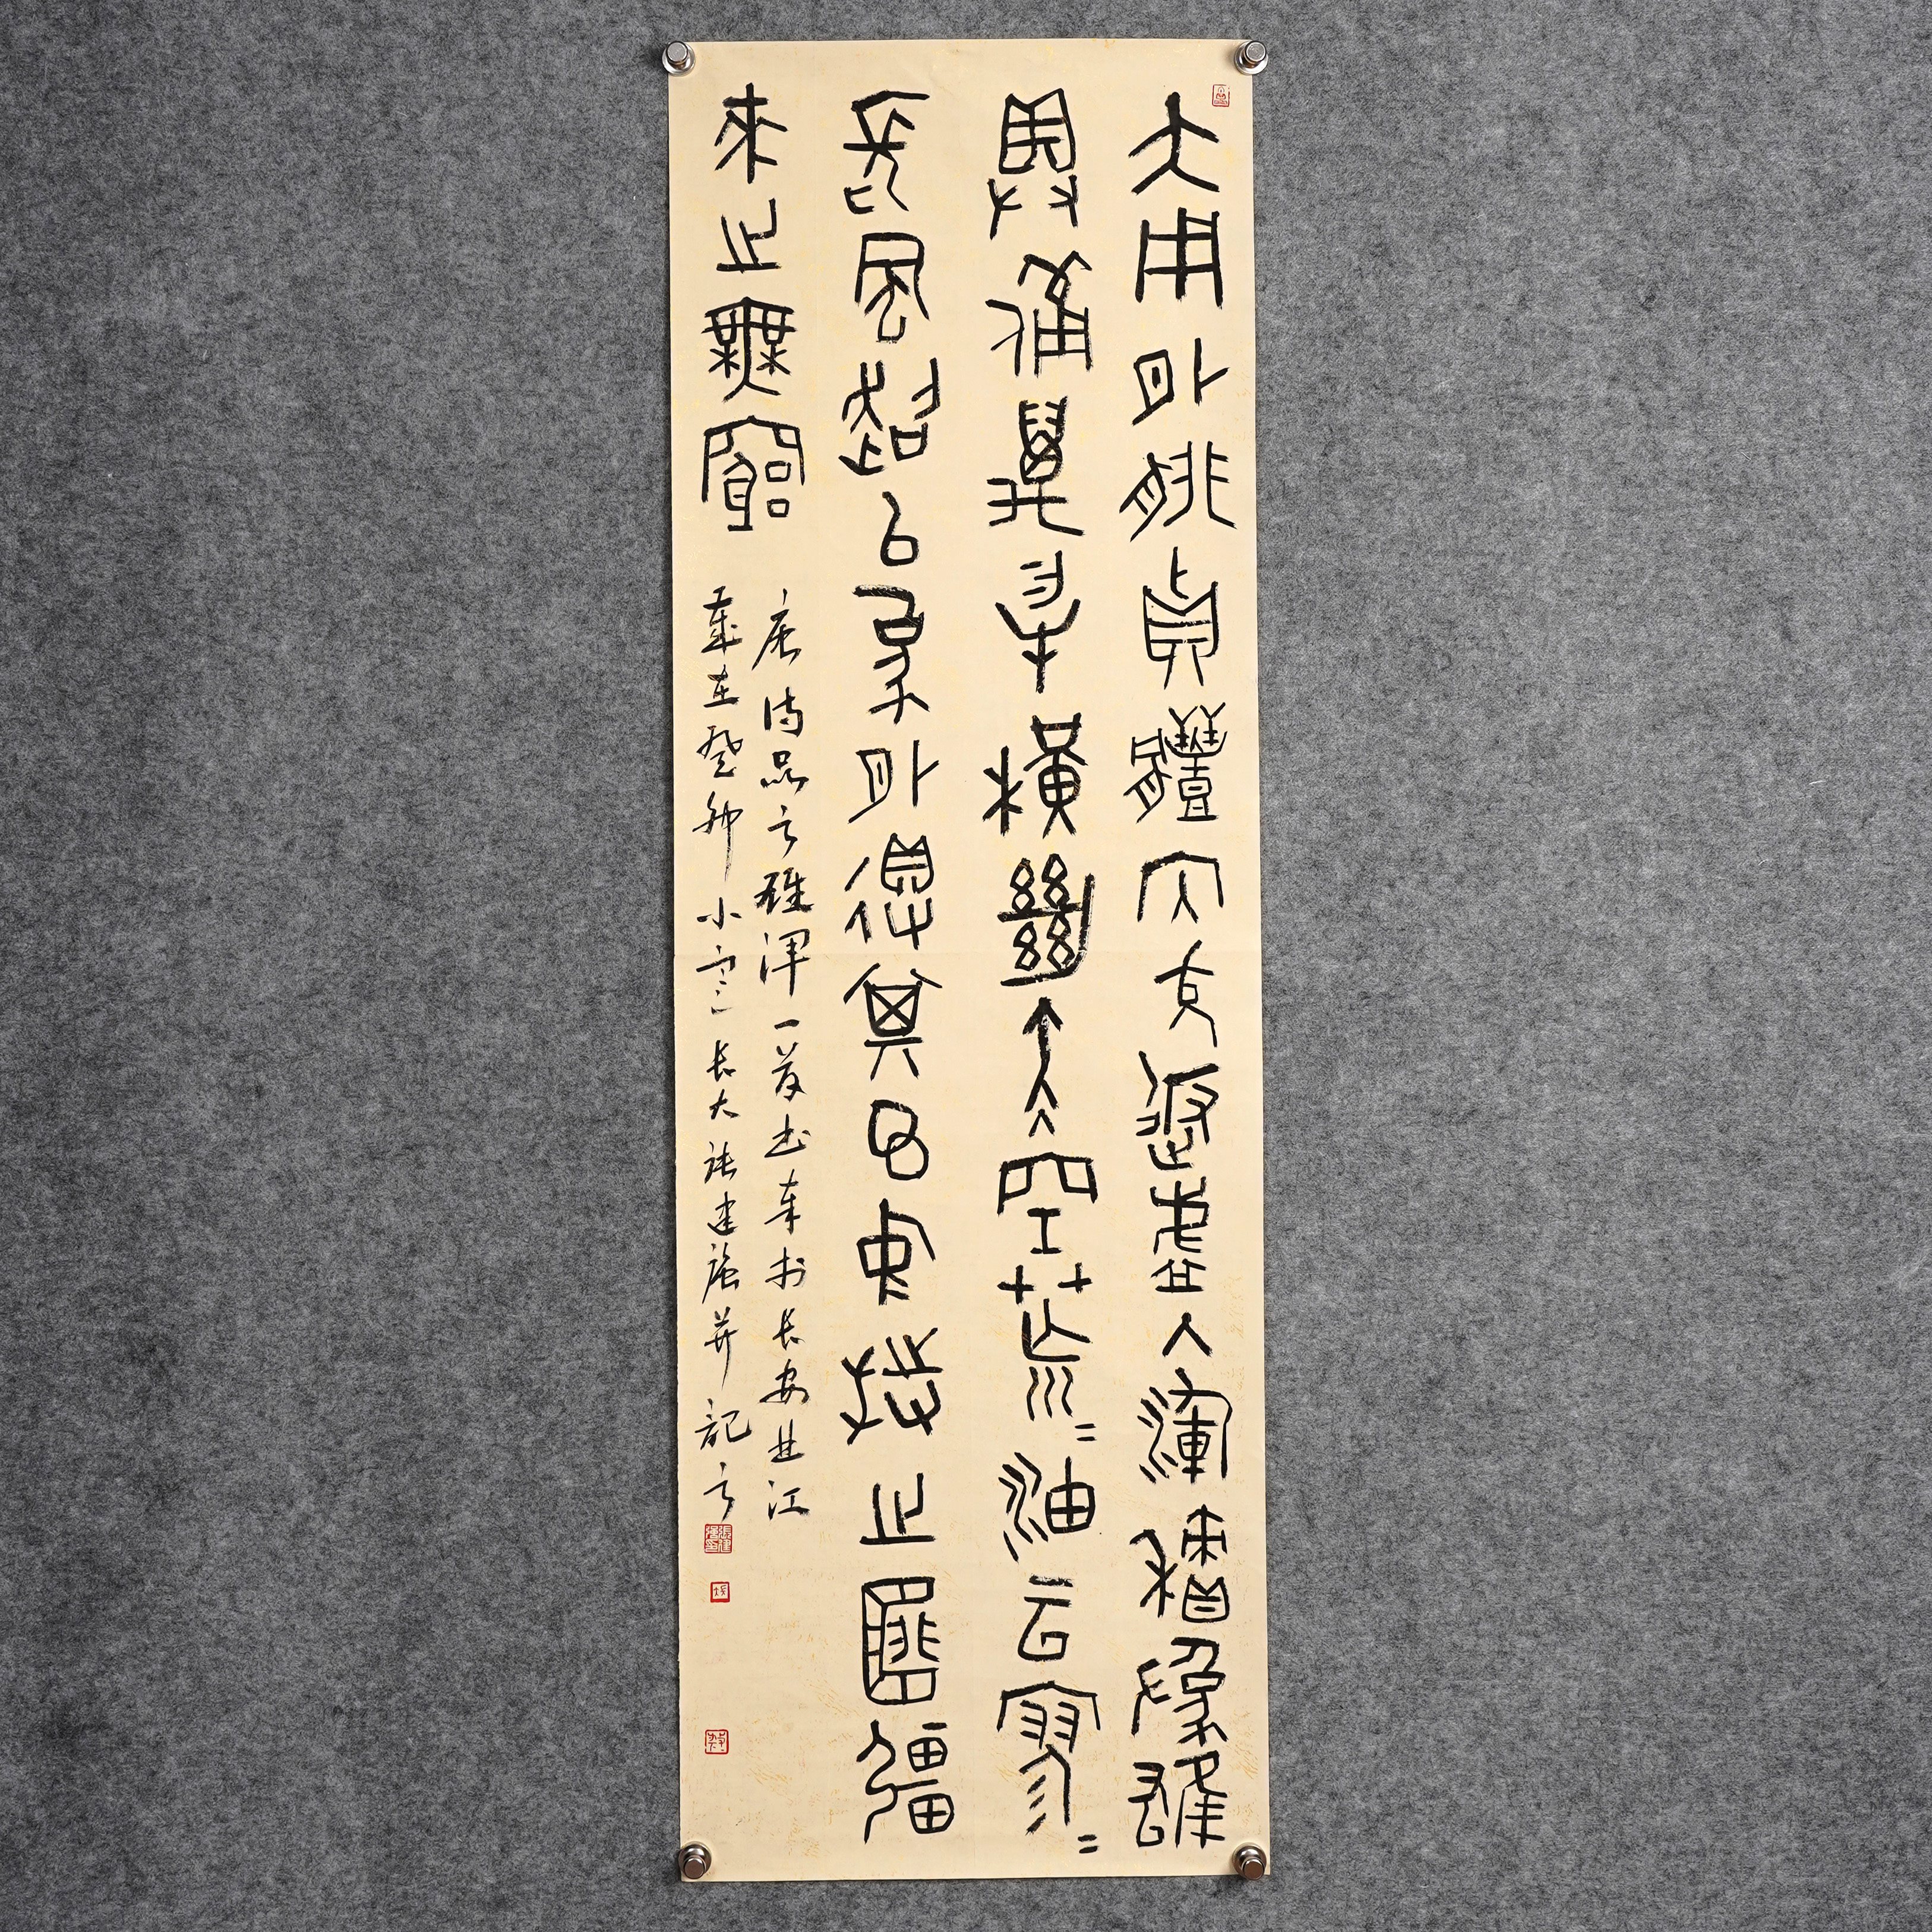 大用外腓真體內充返虛入渾積為雄
具備萬物橫絕太空荒〻油云寥〻
長風超以象外得其環中持之匪彊
來之無窮
詩品之雄渾一首於長安曲江
歲在癸卯小寒長大張建強并記之